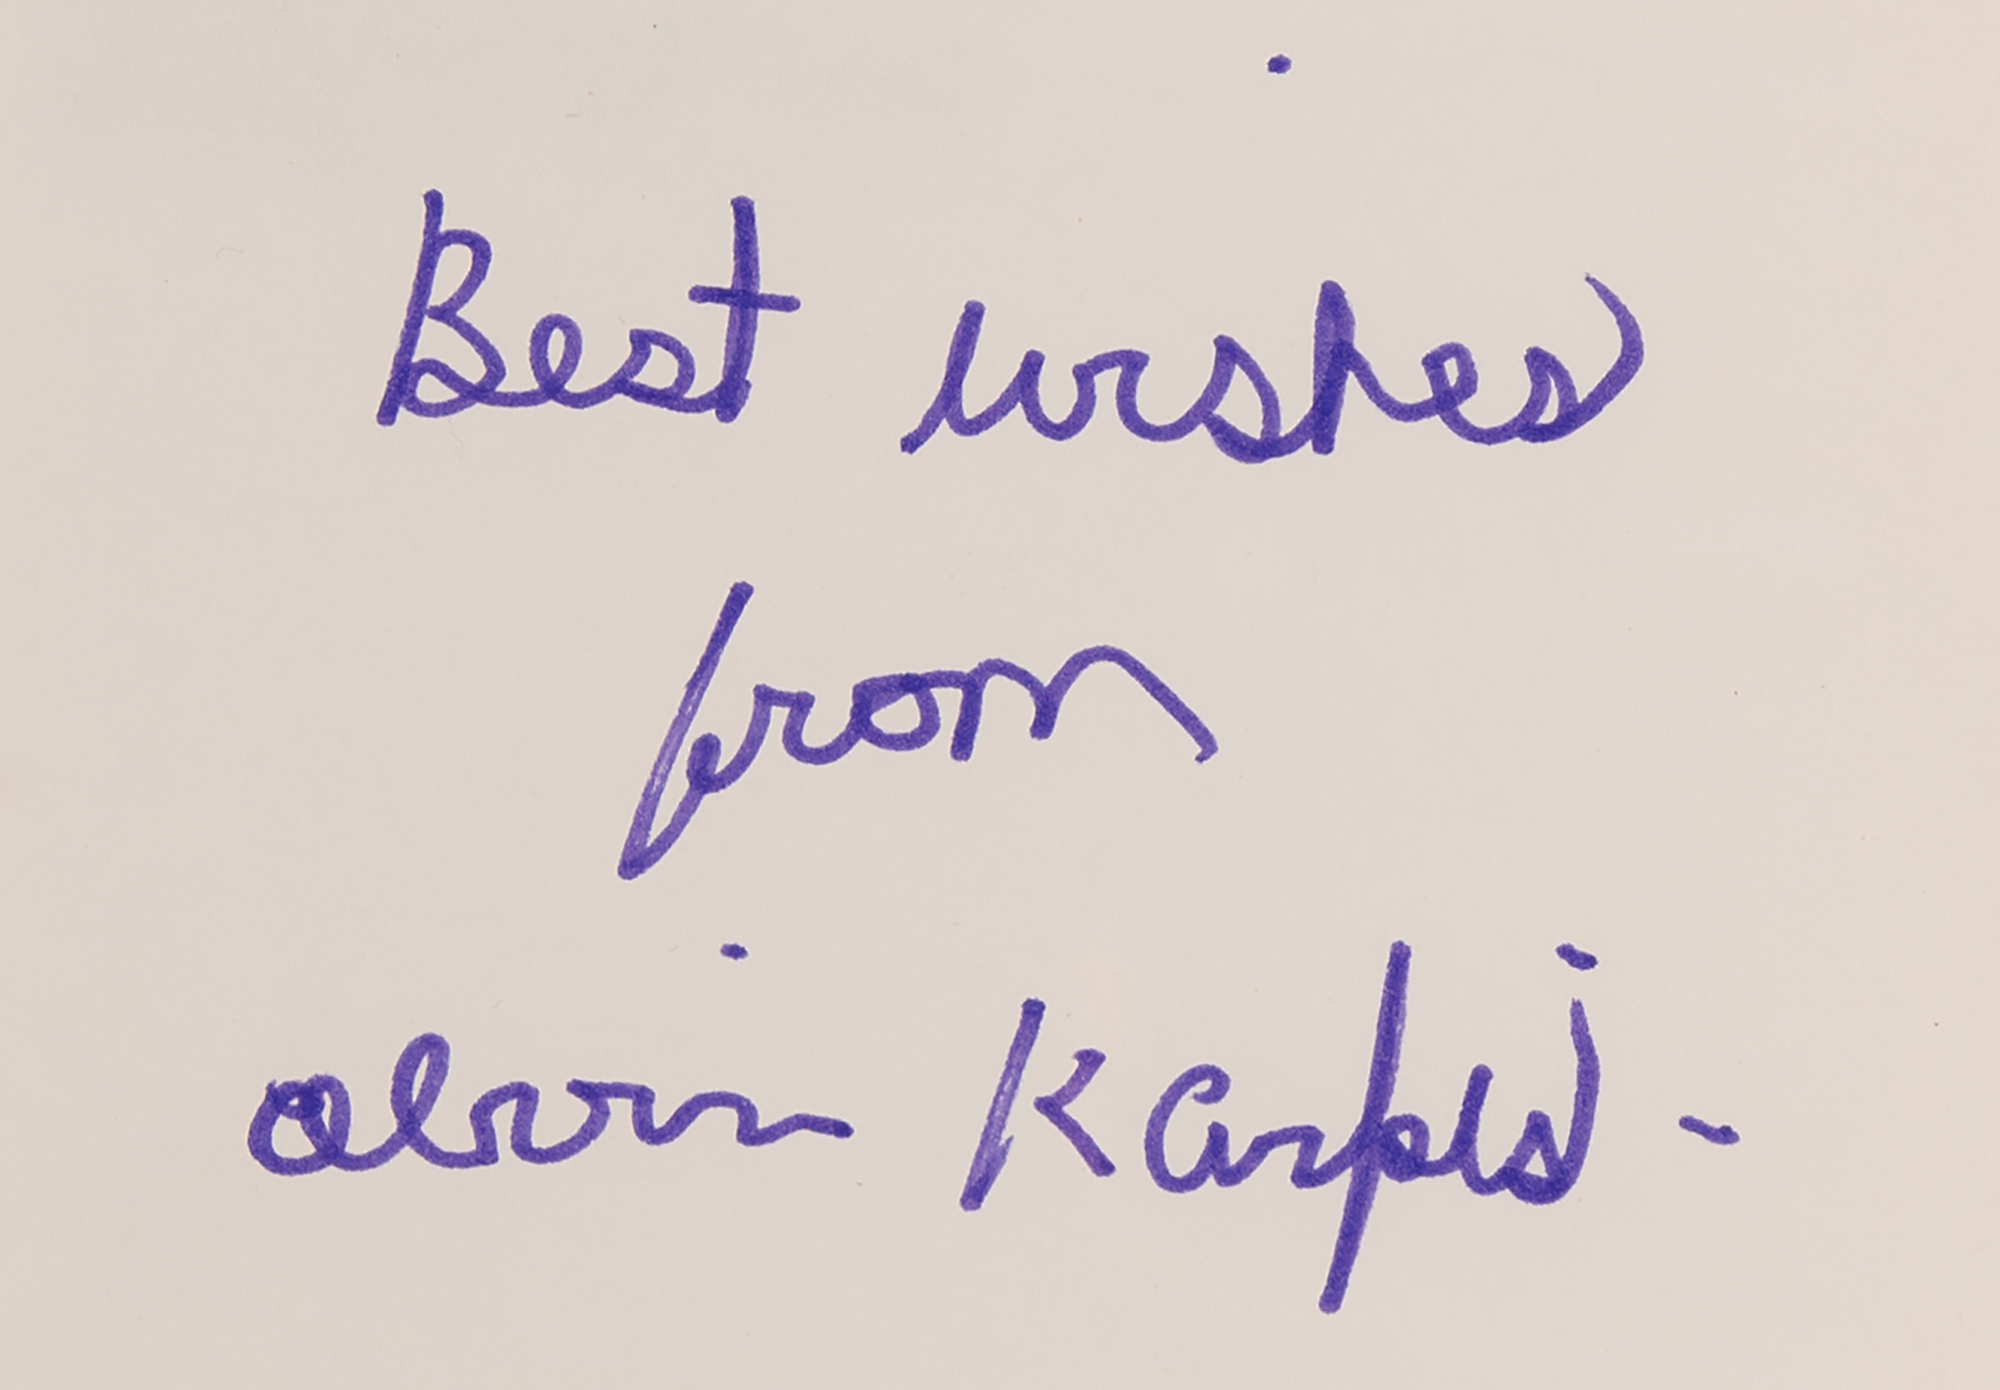 Best wishes
from
alvin Karpis -